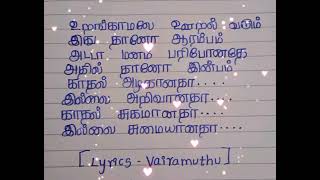 உறங்காமலே உளறல் வரும்
இது தானோ ஆரம்பம்
அடடா மனம் பறிபோனதே
அதில் தானோ இன்பம்
காதல் அழகானதா....
இல்லை அறிவானதா....
காதல் சுகமானதா....
இல்லை சுமையானதா....
[Lyrics - Vairamuthu]